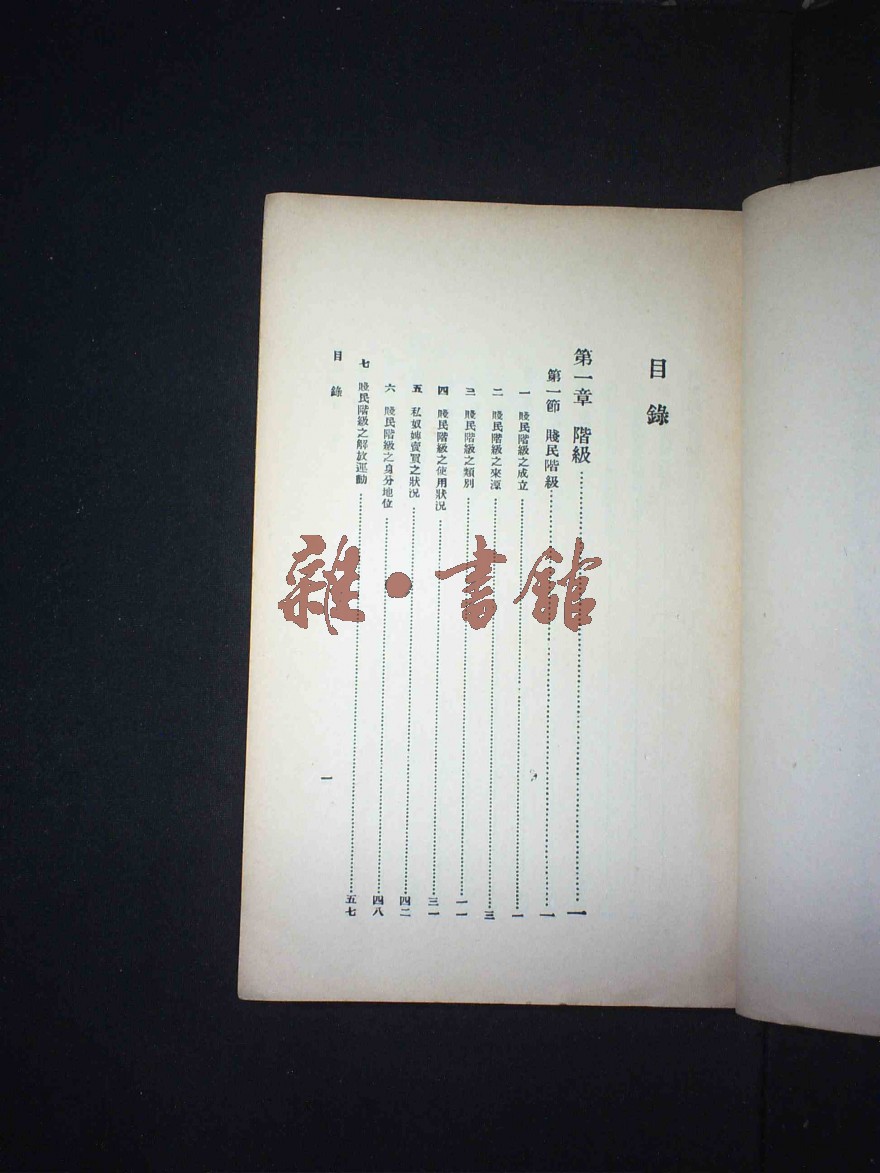 目錄
第一章 階級……一
第一節 賤民階級……一
一 賤民階級之成立……一
二 賤民階級之來源……三
三 賤民階級之類別……一一
四 賤民階級之使用狀況……三一
五 私奴婢賣買之狀況……四二
六 賤民階級之身分地位……四八
七 賤民階級之解放運動……五七
目錄
一
雜•書館